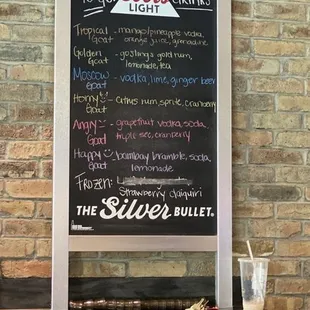 To go DRINKS
Coors
LIGHT
Tropical - mango/pineapple vodka,
Goat orange juice, grenadine
Golden - goslings gold rum,
Goat lemonade, tea
Moscow - vodka, lime, ginger beer
Goat
Horny - citrus rum, sprite, cranberry
Goat
Angry - grapefruit vodka, soda,
Goat triple sec, cranberry
Happy - bombay bramble, soda,
Goat lemonade
Frozen:
Strawberry daiquiri
THE Silver BULLET.